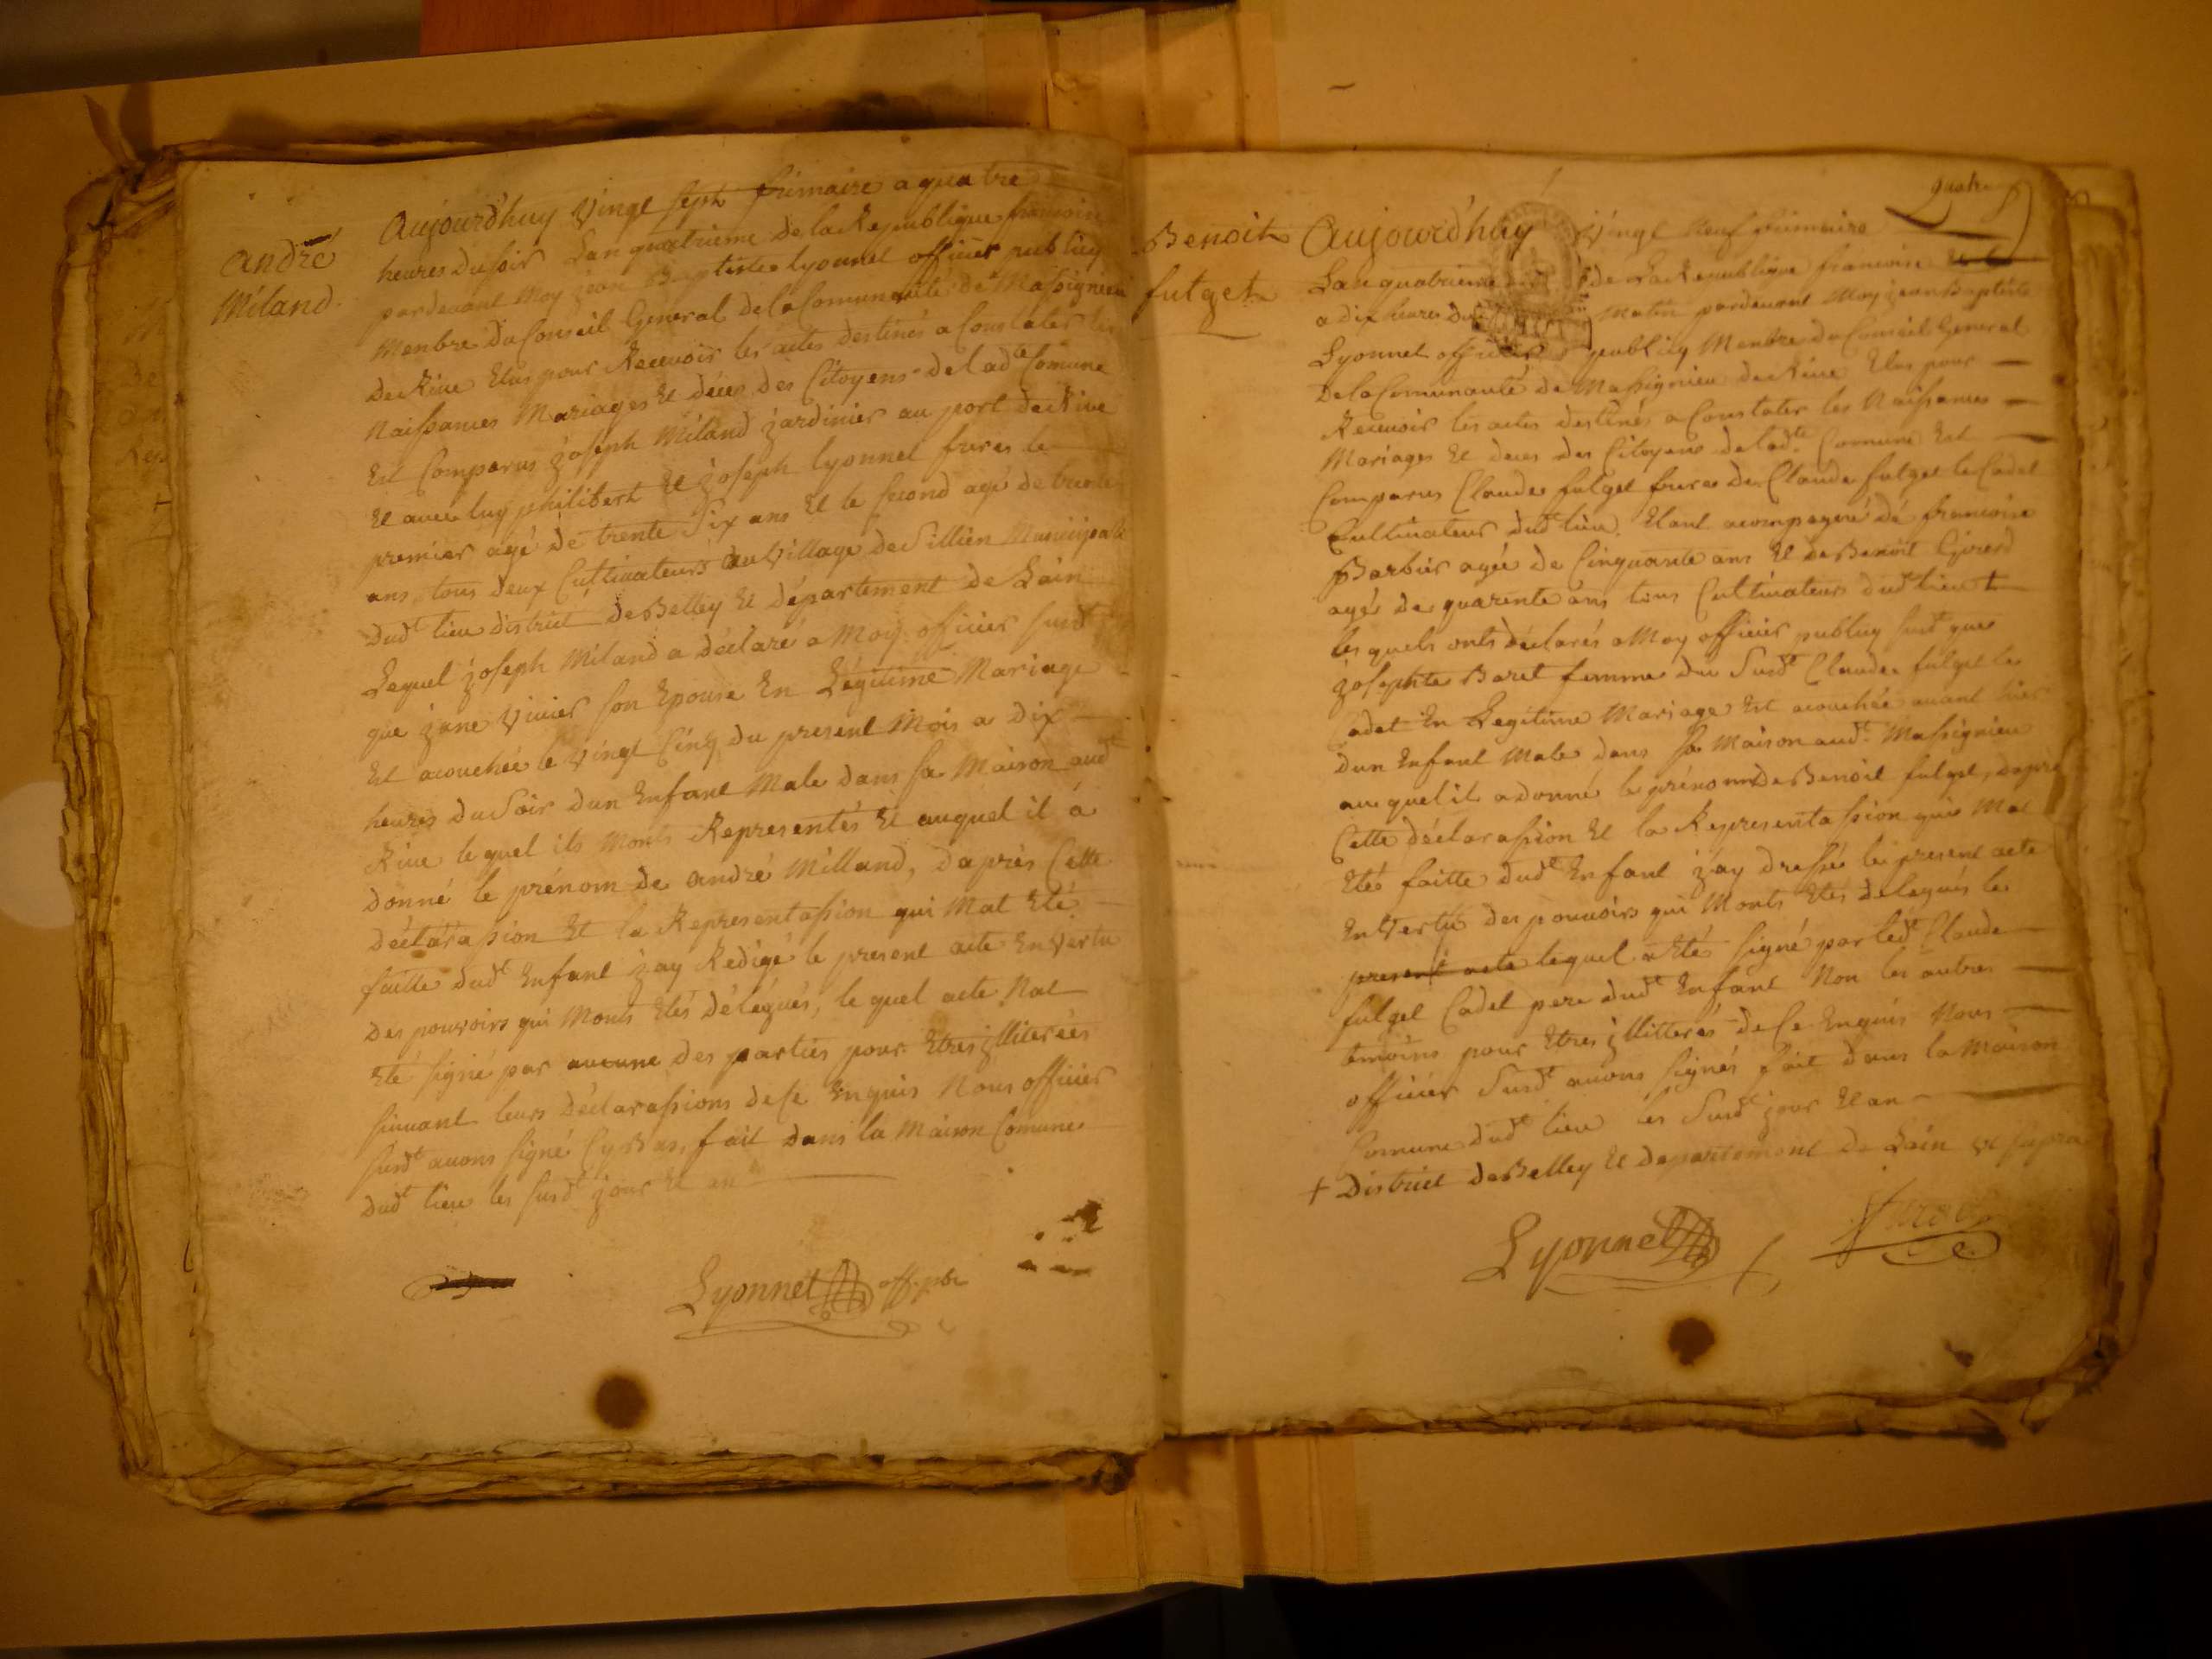 André
Miland.
Aujourd'huy Vingt sept frimaire a quatre
heures du soir Lan quatrieme de la Republique francoise
pardevant Moy jean Baptiste Lyonnet officier publiq
Menbre du Conseil General de la Comunauté de Massignieu
de Rive Elus pour Recevoir les actes destinés a Constater les
Naissances Mariages Et décès des Citoyens de lad.te Comune
Est Comparus joseph Miland jardinier au port de Rive
Et avec luy philibert Et joseph lyonnet freres le
premier agé de trente Six ans Et le Second agé de trente
ans tous deux Cultivateurs au Village de Sillien Municipalité
dud.t lieu district de Belley Et département de Lain
Lequel joseph Miland a déclaré a Moy officier susd.t
que jane Vivier son Epouse En Légitime Mariage
Est acouchée le Vingt Cinq du present Mois a Dix
heures du Soir dun Enfant Male dans sa Maison aud.t
Rive lequel ils Monts Representés Et auquel il á
donné le prénom de André Milland, daprès Cette
déclarassion Et la Representassion qui Mat Eté
faitte dud.t Enfant jay Redigé le present acte En Vertu
des pouvoirs qui Monts Etés délégués, le quel acte Nat
Eté signé par aucune des parties pour Etres jlliterées
suivant leurs Déclarassions de Ce Enquis Nous officier
susd.t avons signé Cy Bas, fait dans la Maison Comune
dud.t lieu les susd.t jour Et an
Lyonnet off. pbc
quatre
Benoit
fulget
Aujourd'huy Vingt Neuf frimaire
Lan quatrieme de La Republique francoise
a dix heures du Matin pardevant Moy jean Baptiste
Lyonnet officier publiq Menbre du Conseil General
De la Comunauté de Massignieu de Rive Elus pour
Recevoir les actes destinés a Constater les Naissances
Mariages Et deces des Citoyens de lad.te Comune Est
Comparus Claude fulget frere de Claude fulget le Cadet
Cultivateur dud.t lieu Etant acompagné dé francoise
Barbier agée de Cinquante ans Et de Benoit Girerd
agés de quarente ans tous Cultivateurs dud.t lieu +
les quels onts déclarés a Moy officier publiq susd.t que
josephte Baret femme du Susd.t Claude fulget le
Cadet En Legitime Mariage Est acouchée avant hier
dun Enfant Male dans sa Maison aud.t Massignieu
au quel il a donné le prénom de Benoit fulget, daprès
Cette déclarassion Et la Representassion qui Mat
Etée faitte dud.t Enfant jay dressée le present acte
En Vertu des pouvoirs qui Monts Etés delegués le
present acte lequel a Eté signé par led.t Claude
fulget Cadet pere dud.t Enfant Non les autres
temoins pour Etres jllitterés de Ce Enquis Nous
officier Susd.t avons signés fait dans la Maison
Comune dud.t lieu les Susd.t jour Et an
+ District de Belley Et departement de Lain
Lyonnet